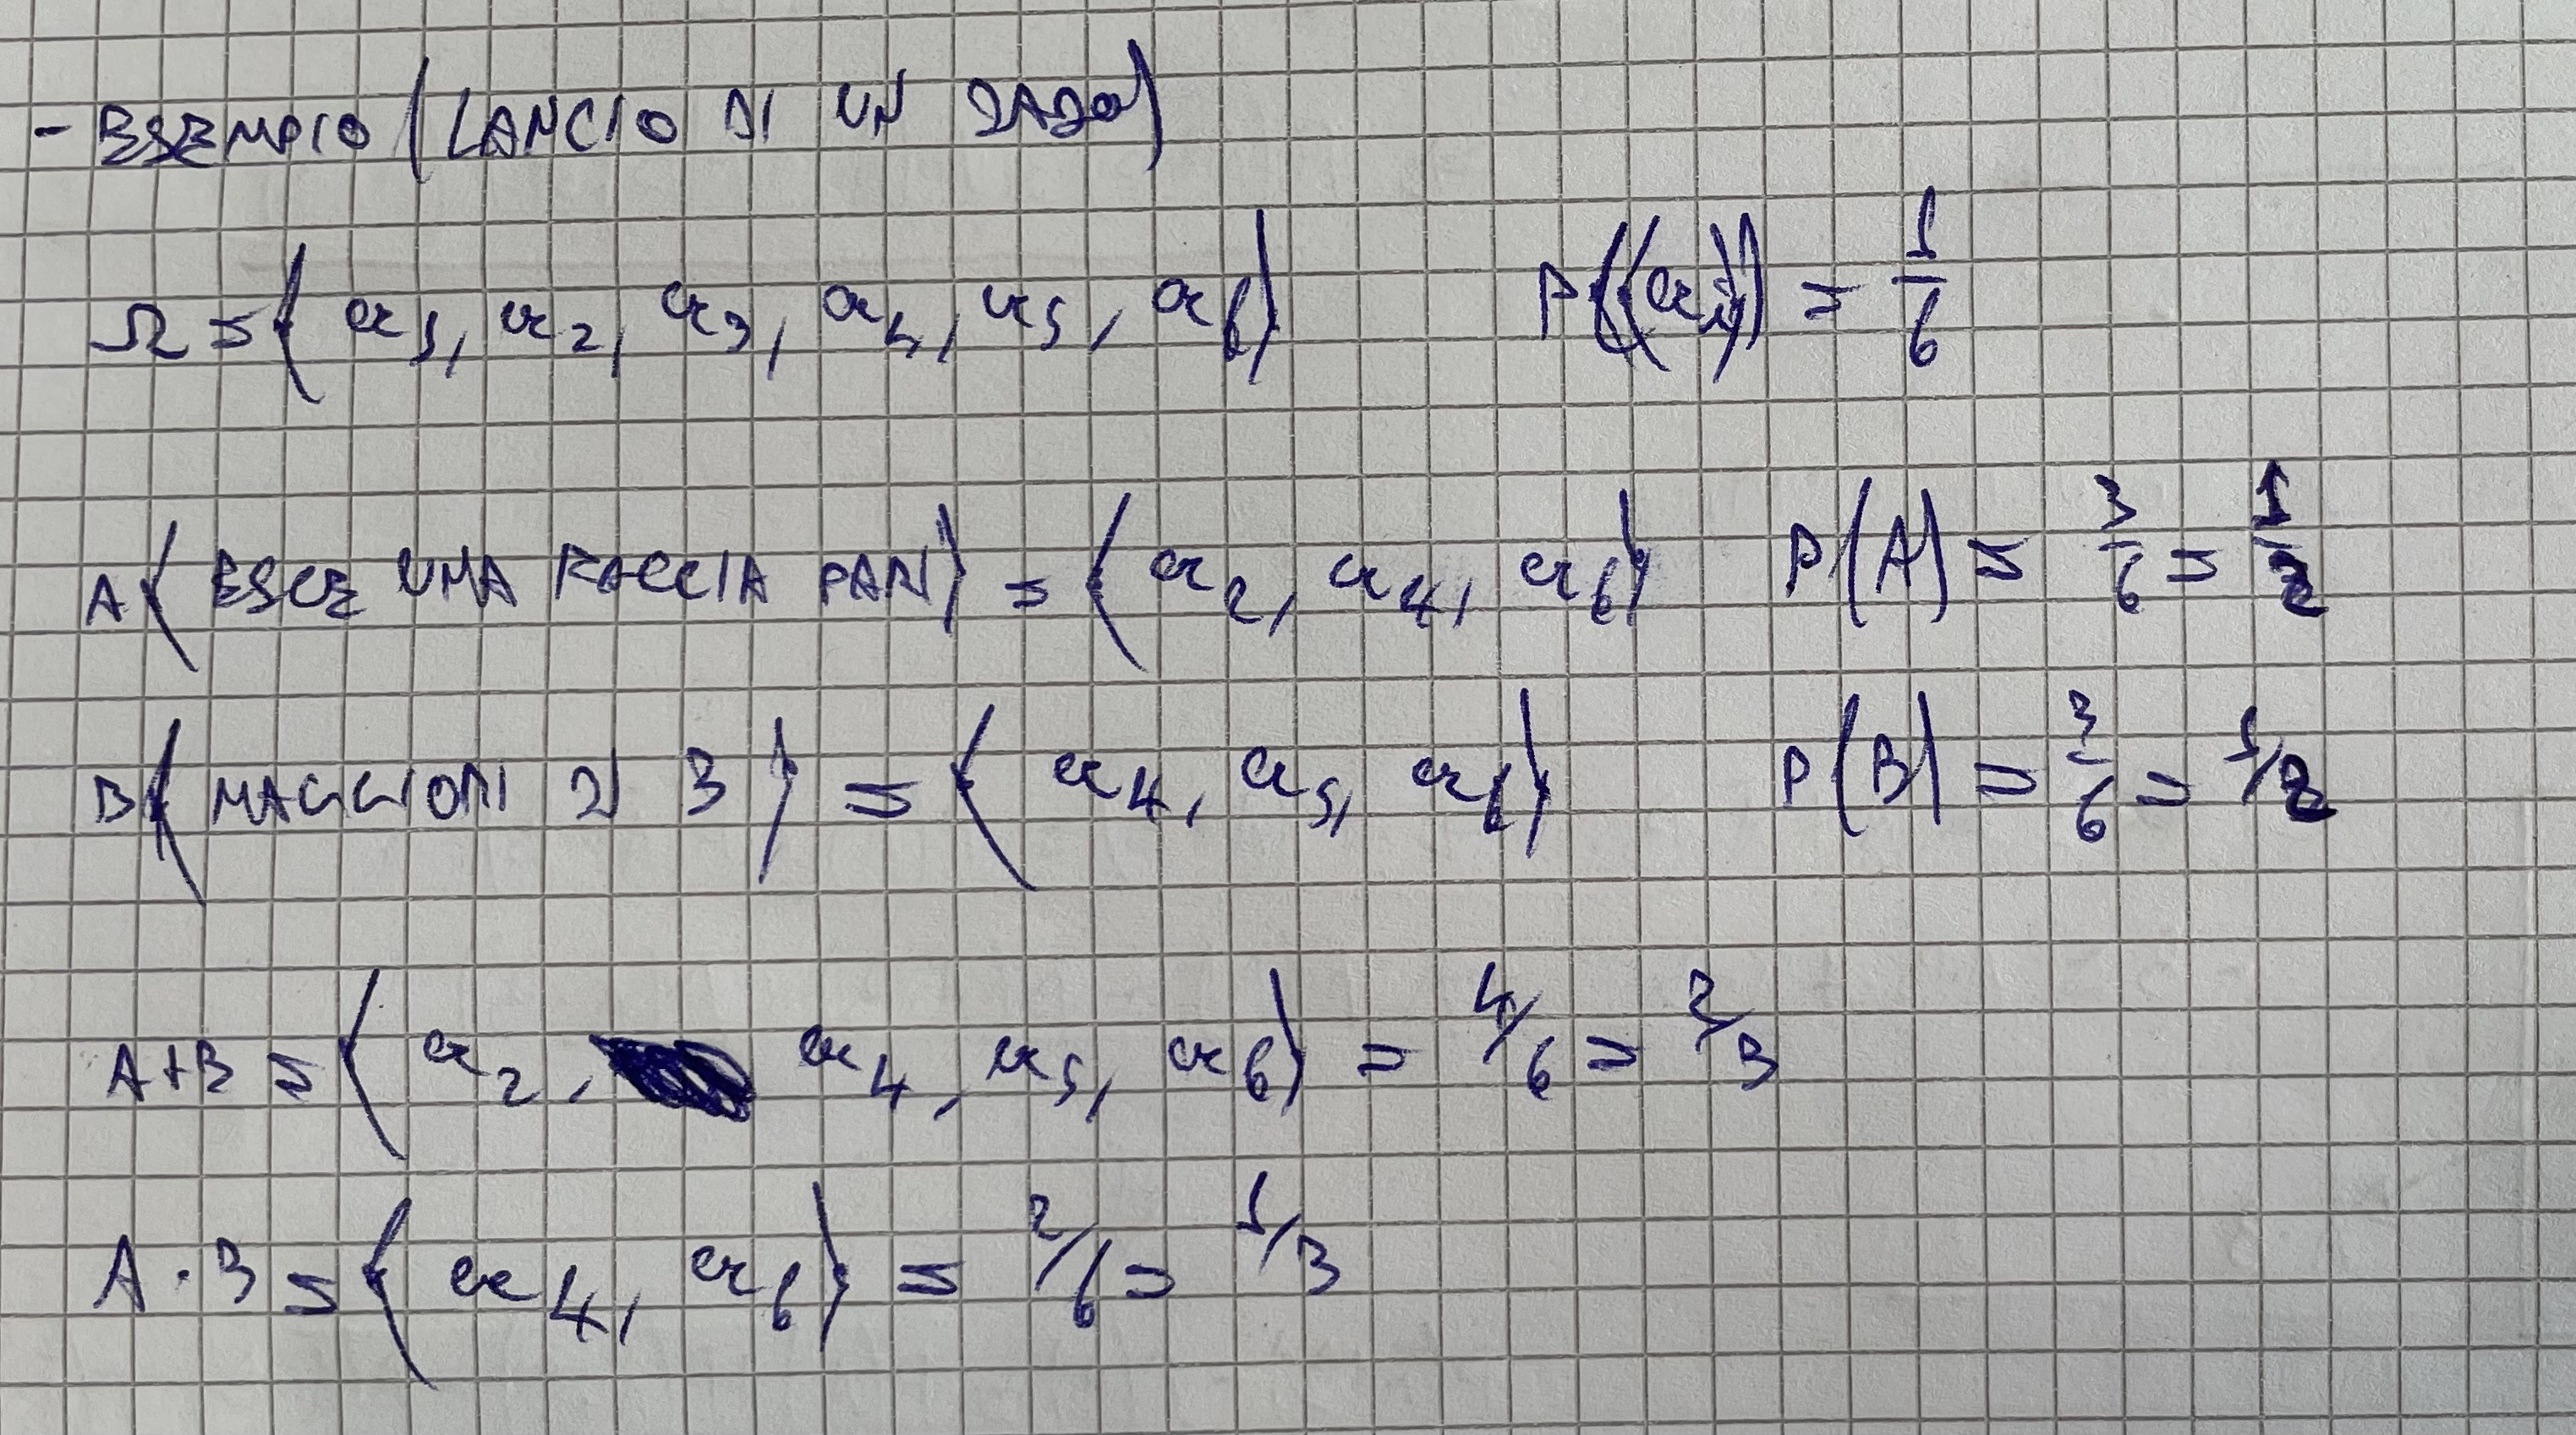 - ESEMPIO (LANCIO DI UN DADO)
Ω = { a1, a2, a3, a4, a5, a6 } P({ai}) = 1/6
A { ESCE UNA FACCIA PARI } = { a2, a4, a6 } P(A) = 3/6 = 1/2
B { MAGGIORI DI 3 } = { a4, a5, a6 } P(B) = 3/6 = 1/2
A+B = { a2, a4, a5, a6 } = 4/6 = 2/3
A·B = { a4, a6 } = 2/6 = 1/3